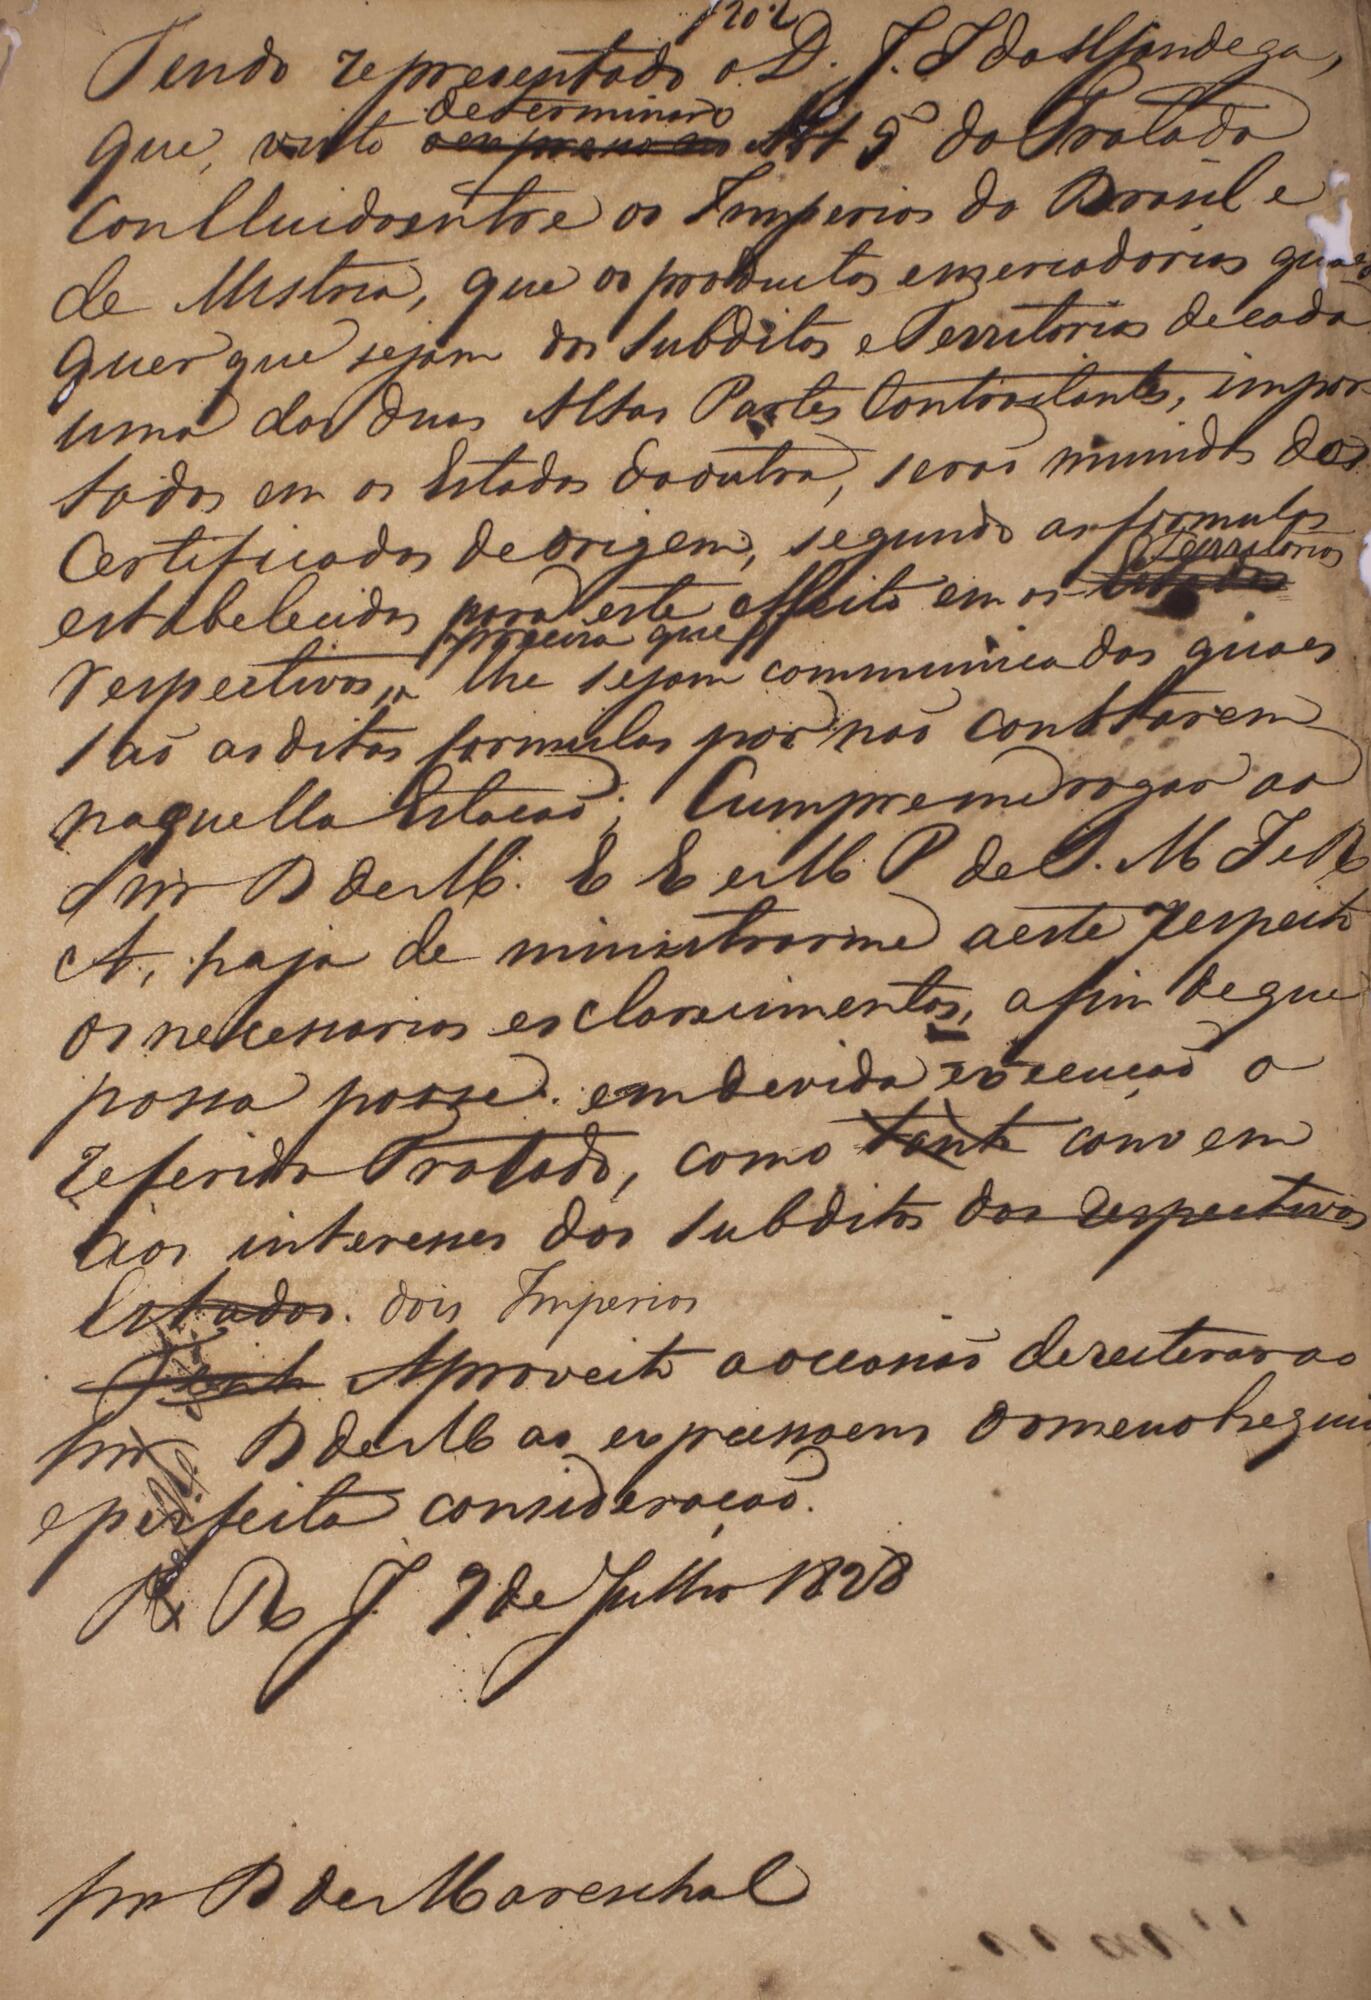 Tendo representado o D. J. I da Alfandega,
que, visto determinar o Art 9º do Tratado
Concluido entre os Imperios do Brasil e
de Austria, que os productos e mercadorias quaes
quer que sejam dos Subditos e Territorios de cada
uma das duas Altas Partes Contractantes, impor-
tados em os Estados da outra, seraõ munidos dos
Certificados de origem, segundo as formulas
estabelecidas para este effeito em os Territorios
respectivos, precisa que lhe sejam communicadas quaes
saõ as ditas formulas por naõ constarem
naquella Estacaõ; Cumpre me rogar ao
Snr B de M. E E e M P de S. M I e R
A, haja de ministrarme a este respeito
os necessarios esclarecimentos, a fim de que
possa pôrse em devida execuçaõ o
referido Tratado, como tanto convem
aos interesses dos Subditos dos respectivos
Estados. dois Imperios
Aproveito a occasiaõ de reiterar ao
Snr B de M as expressoens do meu obsequio
e perfeita consideraçaõ.
R J 9 de Julho 1828
Snr B de Mareschal